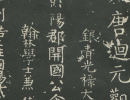 唐迴元觀
銀青光祿大
陽郡開國公
翰林學士兼